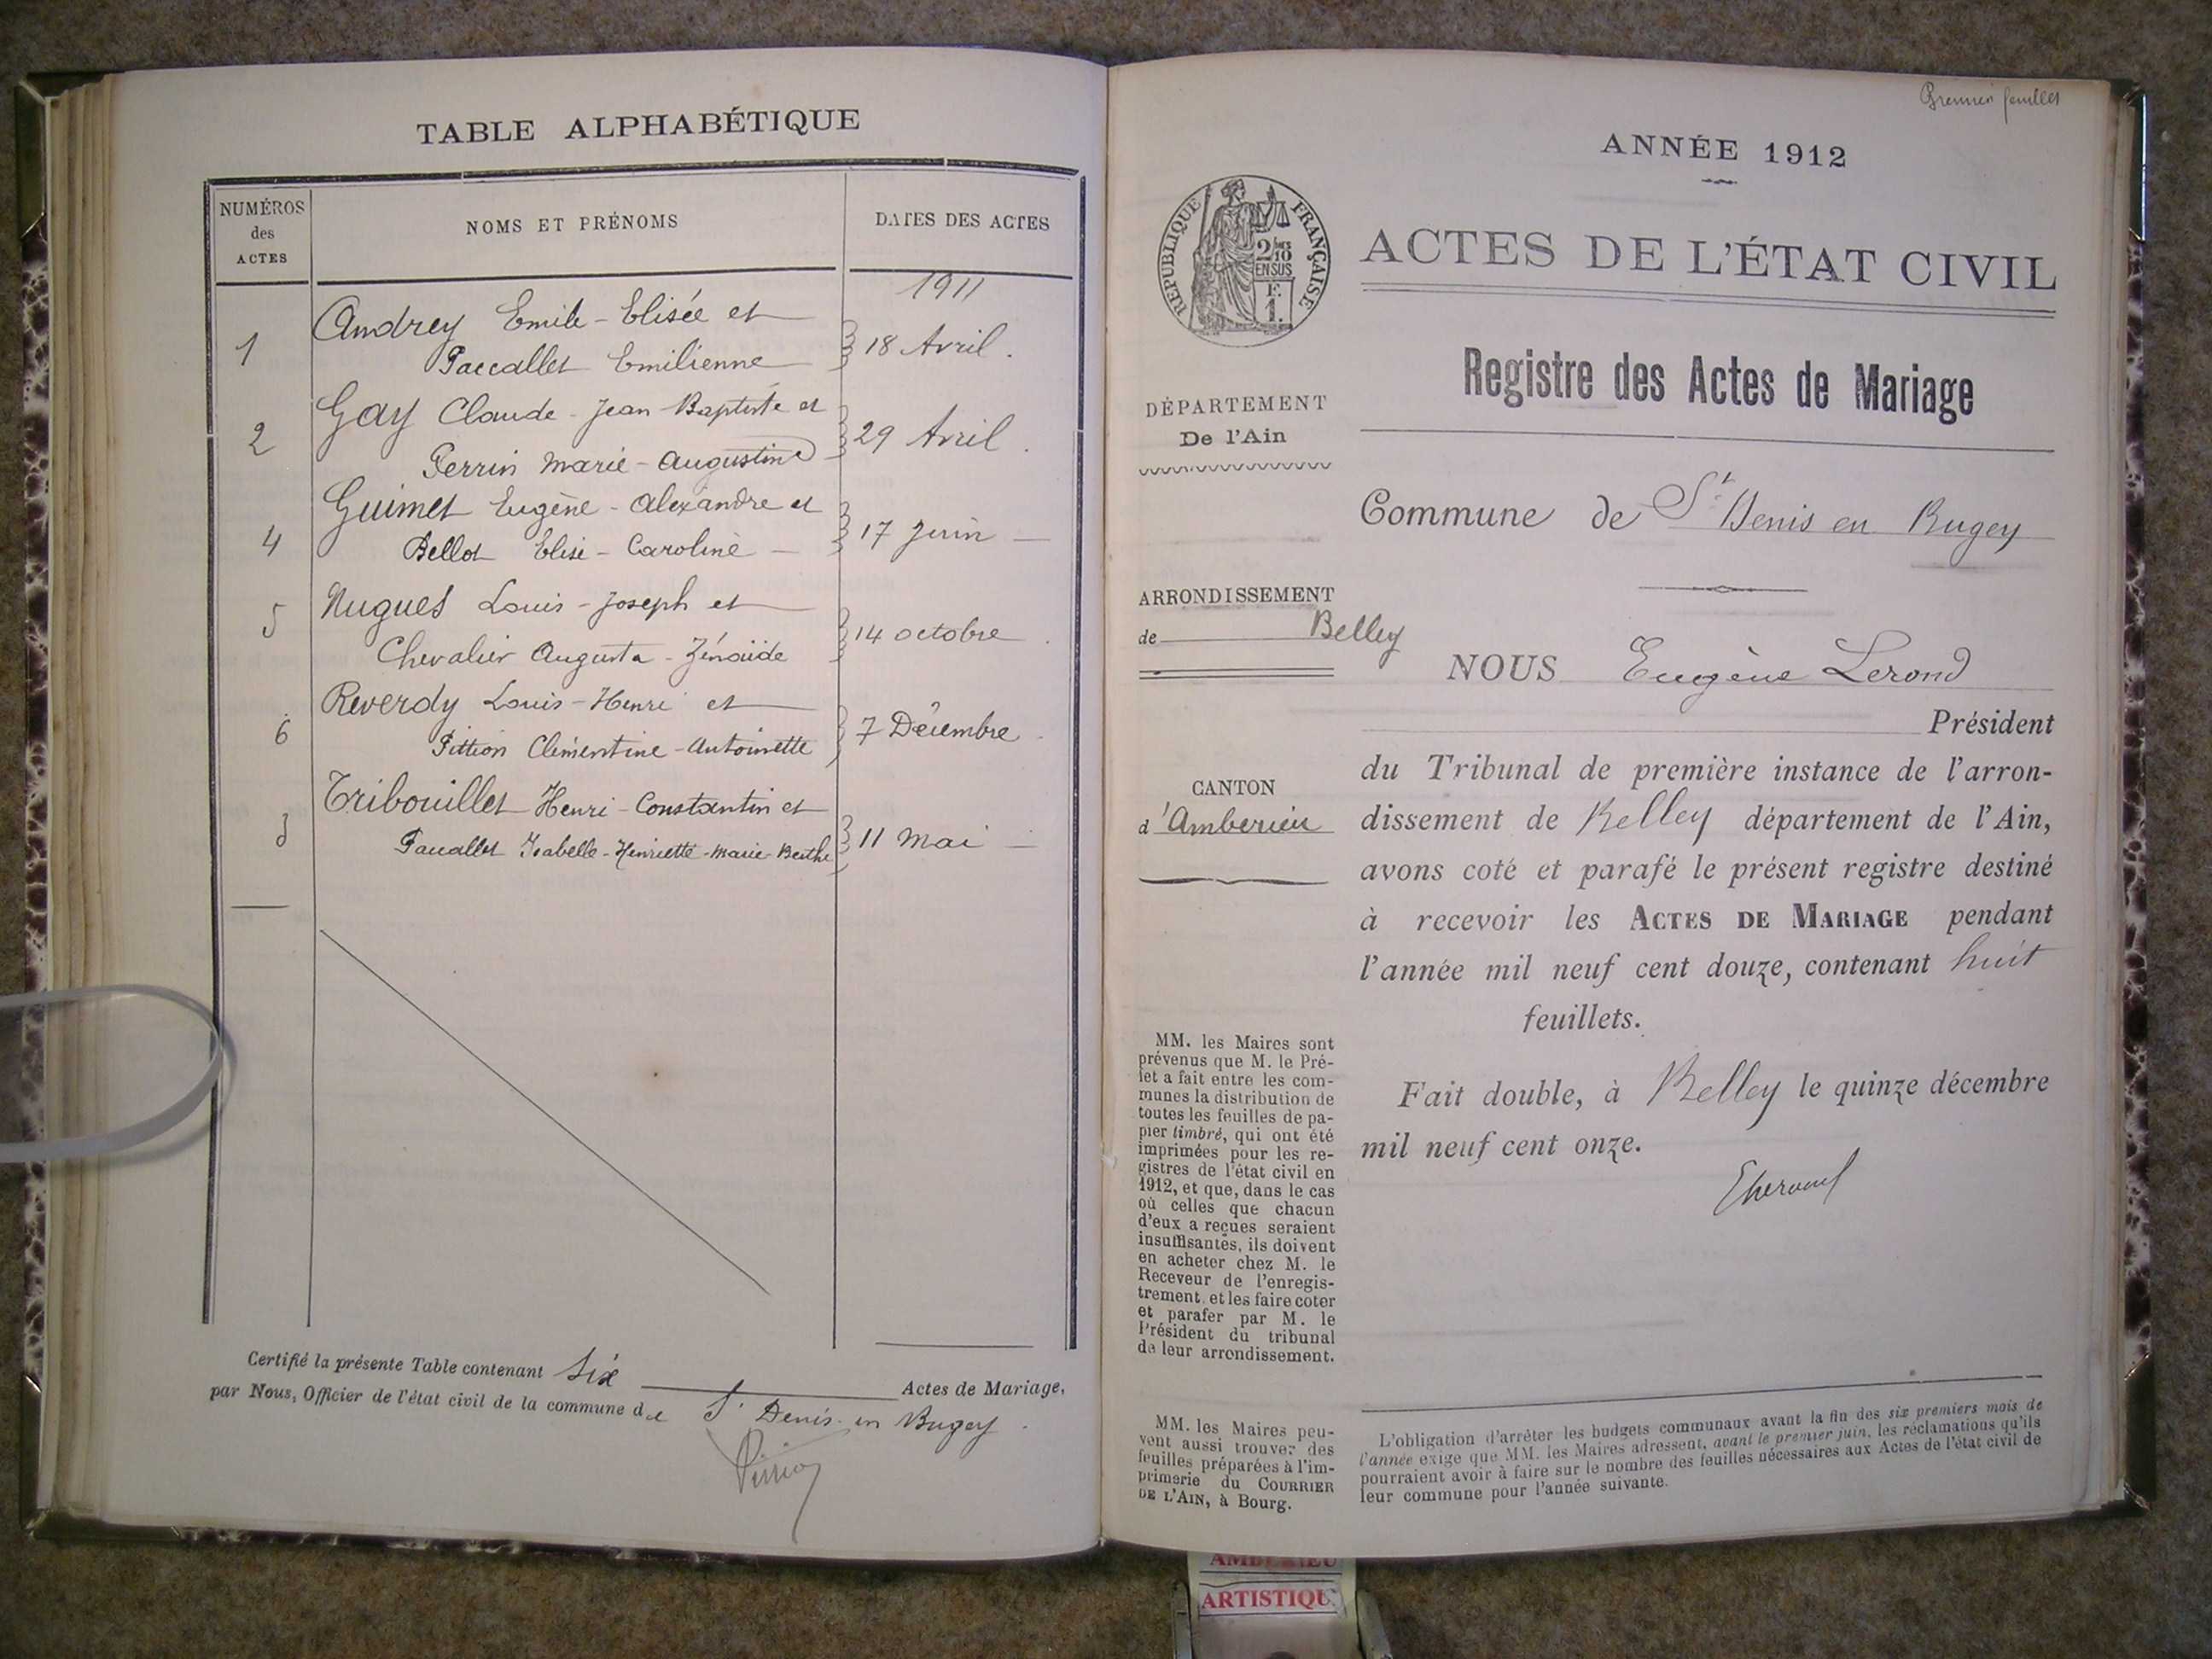 TABLE ALPHABÉTIQUE
NUMÉROS
des
ACTES
NOMS ET PRÉNOMS
DATES DES ACTES
1911
Andrey Emile-Elisée et
1
Paccallet Emilienne
18 Avril.
Gay Claude-Jean Baptiste et
2
Perrin Marie-Augustine
29 Avril.
Guimet Eugène-Alexandre et
4
Bellot Elise-Caroline
17 Juin
Nugues Louis-Joseph et
5
Chevalier Augusta-Zénaïde
14 octobre
Reverdy Louis-Henri et
6
Pittion Clémentine-Antoinette
7 Décembre
Tribouillet Henri-Constantin et
3
Paccallet Isabelle-Henriette-Marie-Berthe
11 Mai
Certifié la présente Table contenant Six Actes de Mariage,
par Nous, Officier de l'état civil de la commune de St Denis-en Bugey.
Premier feuillet
ANNÉE 1912
RÉPUBLIQUE FRANÇAISE
2/10
EN SUS
F.
1.
ACTES DE L'ÉTAT CIVIL
Registre des Actes de Mariage
DÉPARTEMENT
De l'Ain
Commune de St Denis en Bugey
ARRONDISSEMENT
de Belley
NOUS Eugène Lerond
Président
du Tribunal de première instance de l'arron-
CANTON
d'Ambérieu
dissement de Belley département de l'Ain,
avons coté et parafé le présent registre destiné
à recevoir les ACTES DE MARIAGE pendant
l'année mil neuf cent douze, contenant huit
feuillets.
Fait double, à Belley le quinze décembre
mil neuf cent onze.
MM. les Maires sont
prévenus que M. le Pré-
fet a fait entre les com-
munes la distribution de
toutes les feuilles de pa-
pier timbré, qui ont été
imprimées pour les re-
gistres de l'état civil en
1912, et que, dans le cas
où celles que chacun
d'eux a reçues seraient
insuffisantes, ils doivent
en acheter chez M. le
Receveur de l'enregis-
trement et les faire coter
et parafer par M. le
Président du tribunal
de leur arrondissement.
MM. les Maires peu-
vent aussi trouver des
feuilles préparées à l'im-
primerie du COURRIER
DE L'AIN, à Bourg.
L'obligation d'arrêter les budgets communaux avant la fin des six premiers mois de
l'année exige que MM. les Maires adressent, avant le premier juin, les réclamations qu'ils
pourraient avoir à faire sur le nombre des feuilles nécessaires aux Actes de l'état civil de
leur commune pour l'année suivante.
AMBERIEU
ARTISTIQU